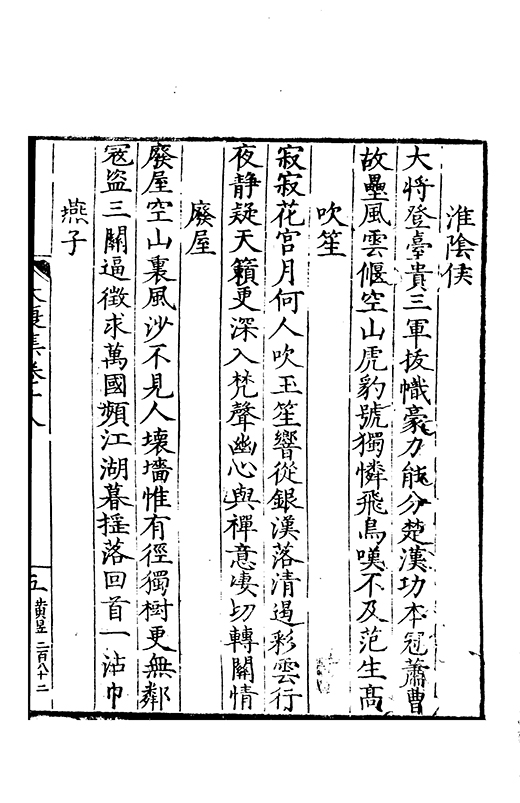 淮陰侯
大將登臺貴三軍拔幟豪力能分楚漢功本冠蕭曹
故壘風雲偃空山虎豹號獨憐飛鳥嘆不及范生高
吹笙
寂寂花宮月何人吹玉笙響從銀漢落清遏彩雲行
夜靜疑天籟更深入梵聲幽心與禪意凄切轉關情
廢屋
廢屋空山裏風沙不見人壞墻惟有徑獨樹更無鄰
冦盜三關逼徵求萬國頻江湖暮揺落回首一沾巾
燕子
集卷十八
五
黄昱二百八十二